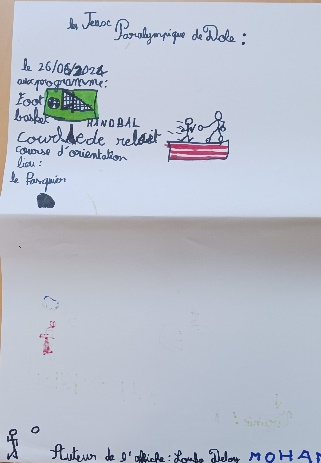 les Jeux Paralympique de Dole :
le 26/06/2024
au programme :
Foot
basket HANDBAL
course de relait
course d'orientation
lieu :
le Pasquier
Auteur de l'affiche : Louka MOHAM